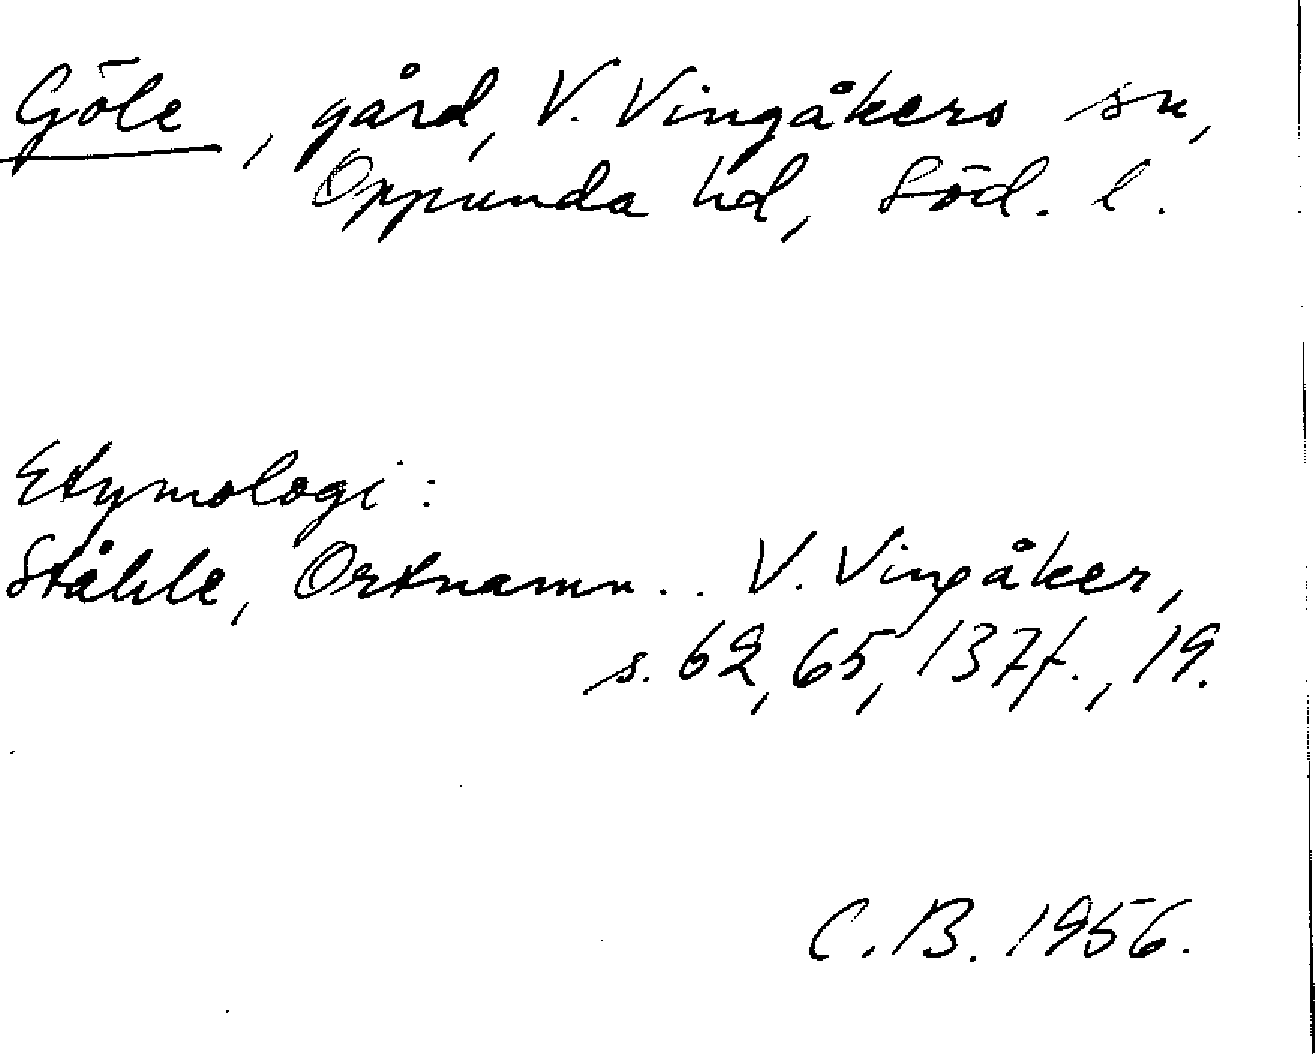 Göle, gård, V. Vingåkers sn,
Oppunda hd, Söd. l.
Etymologi:
Ståhle, Ortnamn.. V. Vingåker,
s. 62, 65, 137f., 19.
C. B. 1956.